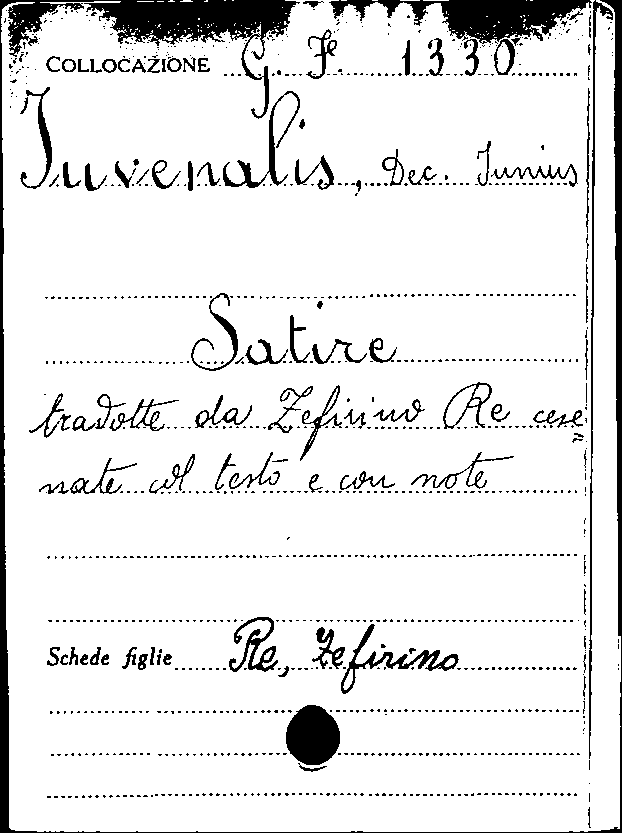 COLLOCAZIONE G. Fe. 1330
Iuvenalis, Dec. Iunius
Satire
tradotte da Zefirino Re cese
nate col testo e con note
Schede figlie Re, Zefirino